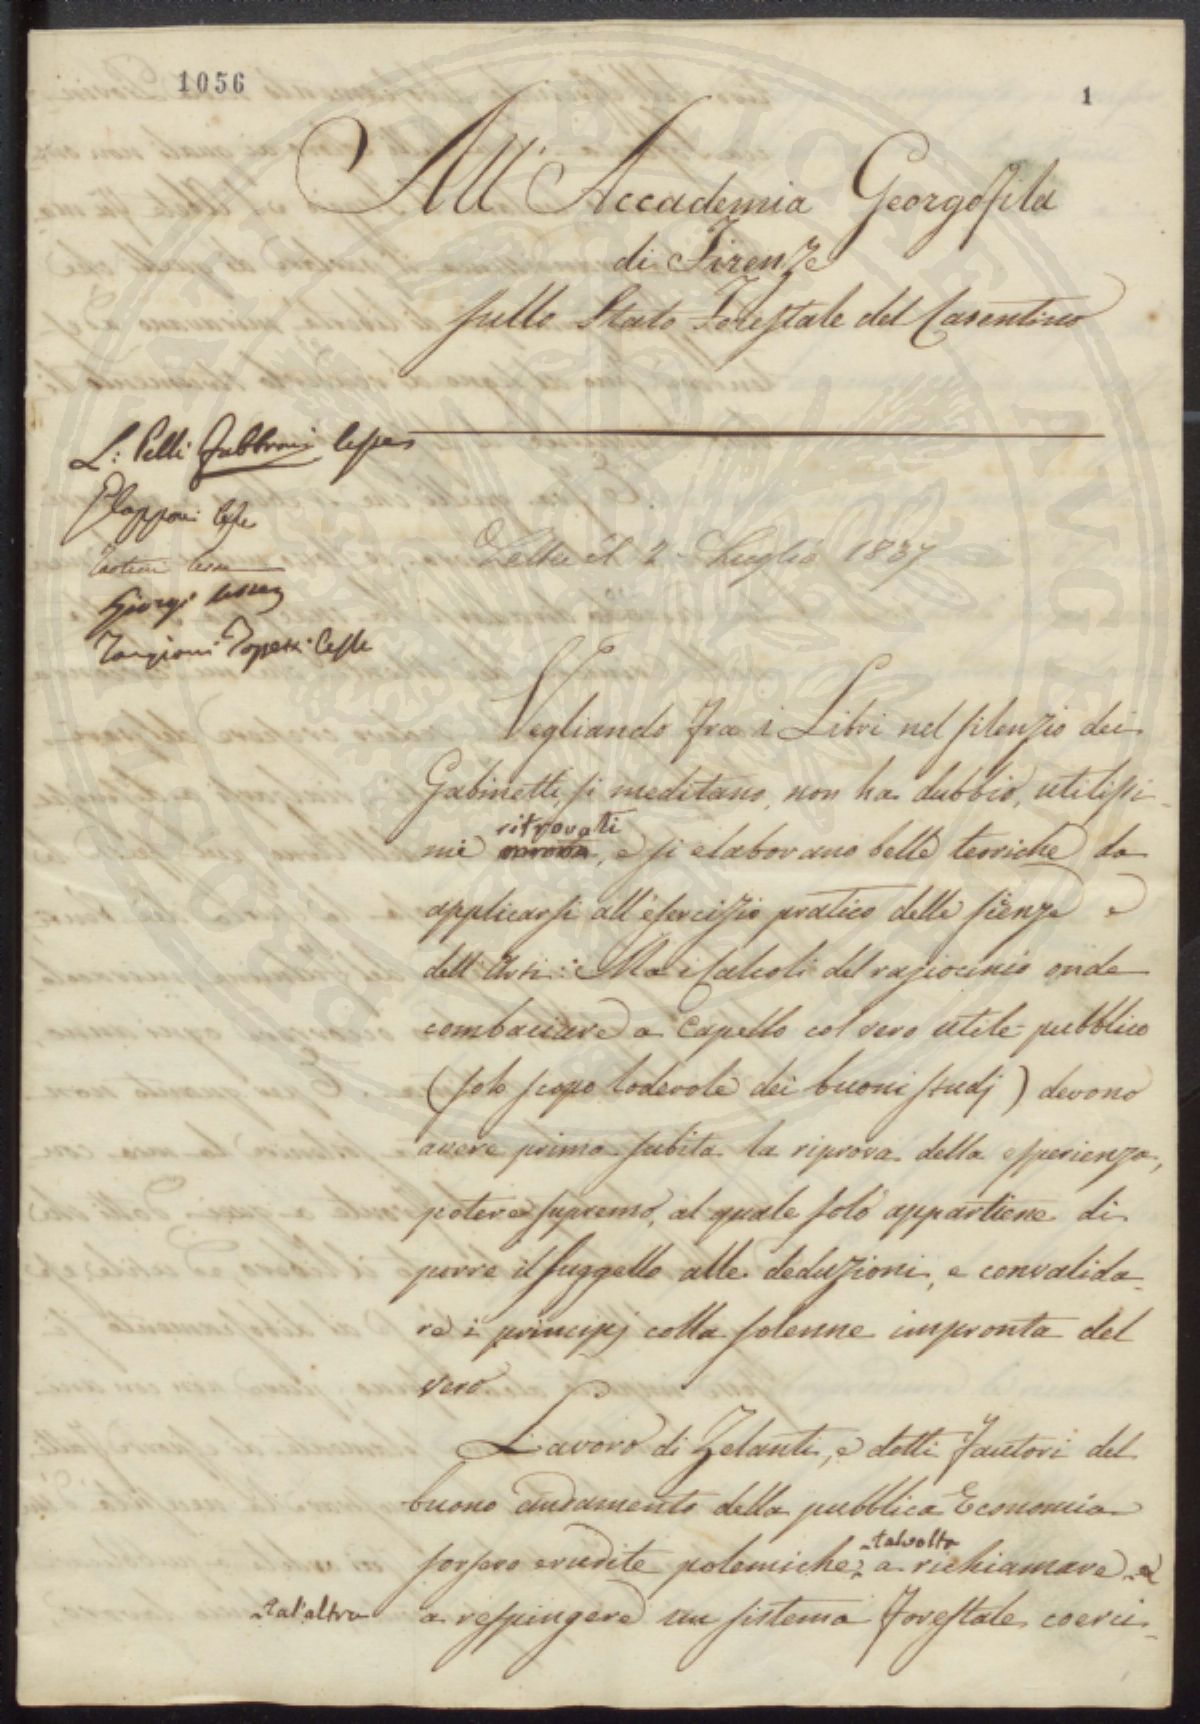 1056
1
All' Accademia Georgofila
di Firenze
sullo Stato Forestale del Casentino
L: Pelli Fabbroni lesse
Capponi lesse
Tartini lesse
Giorgi lesse
Targioni Tozzetti lesse
Letta il 2 Luglio 1837
Vegliando fra i Libri nel silenzio dei
Gabinetti, si meditano, non ha dubbio, utilissi-
ritrovati
mi, e si elaborano belle teoriche da
applicarsi all'esercizio pratico delle sienze e
dell'Arti: Ma i Calcoli del raziocinio onde
combaciare a Capello col vero utile pubblico
(solo scopo lodevole dei buoni studj) devono
avere prima subita la riprova della esperienza,
potere supremo, al quale solo appartiene di
porre il suggello alle deduzioni, e convalida-
re i principj colla solenne impronta del
vero.
Lavoro di Zelanti, e dotti fautori del
buono andamento della pubblica Economia
talvolta
sorsero erudite polemiche, a richiamare, e
tal'altra
a respingere un sistema forestale coerci-
PUBLICAE
AVGE